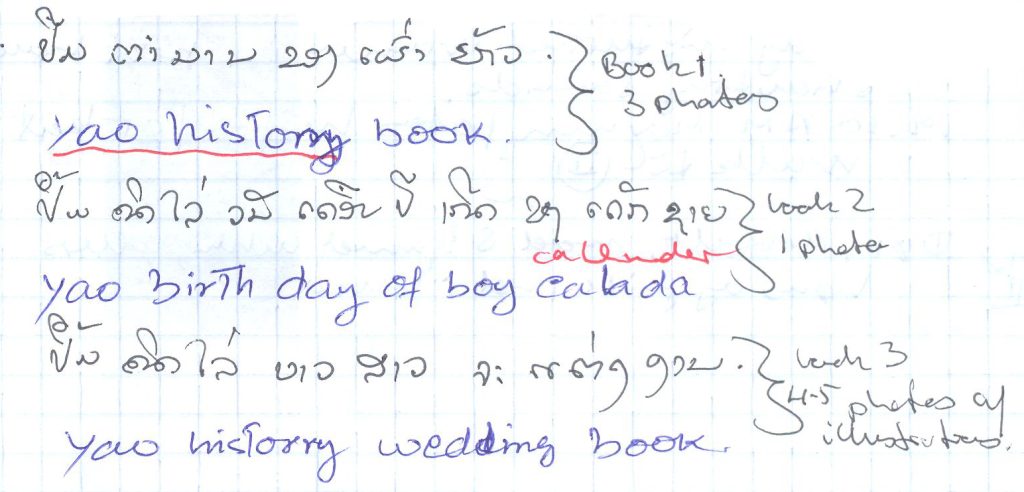 ປຶ້ມ ຕຳ ນານ ຂອງ ເຜົ່າ ຢ້າວ . Book 1.
3 photos
yao historry book.
ປຶ້ມ ຄິດໄລ່ ວັນ ເດືອນ ປີ ເກີດ ຂອງ ເດັກ ຊາຍ book 2
1 photo
callender
yao birth day of boy calada
ປຶ້ມ ຄິດໄລ່ ບາວ ສາວ ຈະ ແຕ່ງ ງານ . book 3
4-5 photos of
illustrations.
yao historry wedding book.